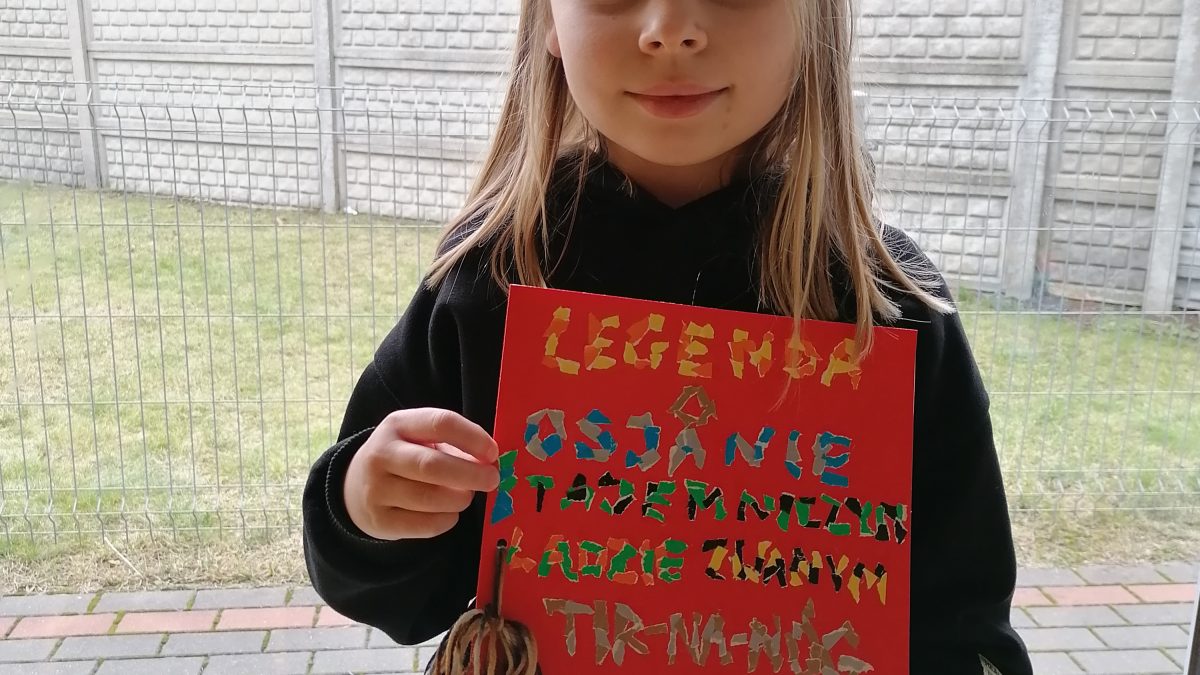 LEGENDA
O
OSJANIE
I TAJEMNICZYM
LĄDZIE ZWANYM
TIR-NA-NÓG